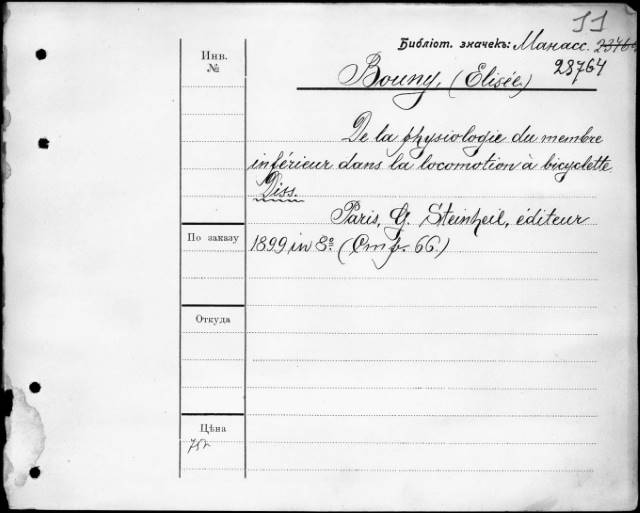 11
Библіот. значекъ: Манасс. 23764
23764
Инв.
№
Bouny, (Elisée.)
De la physiologie du membre
inférieur dans la locomotion à bicyclette.
Diss.
Paris, G. Steinheil, éditeur
По заказу
1899 in 8º (Стр. 66.)
Откуда
Цѣна